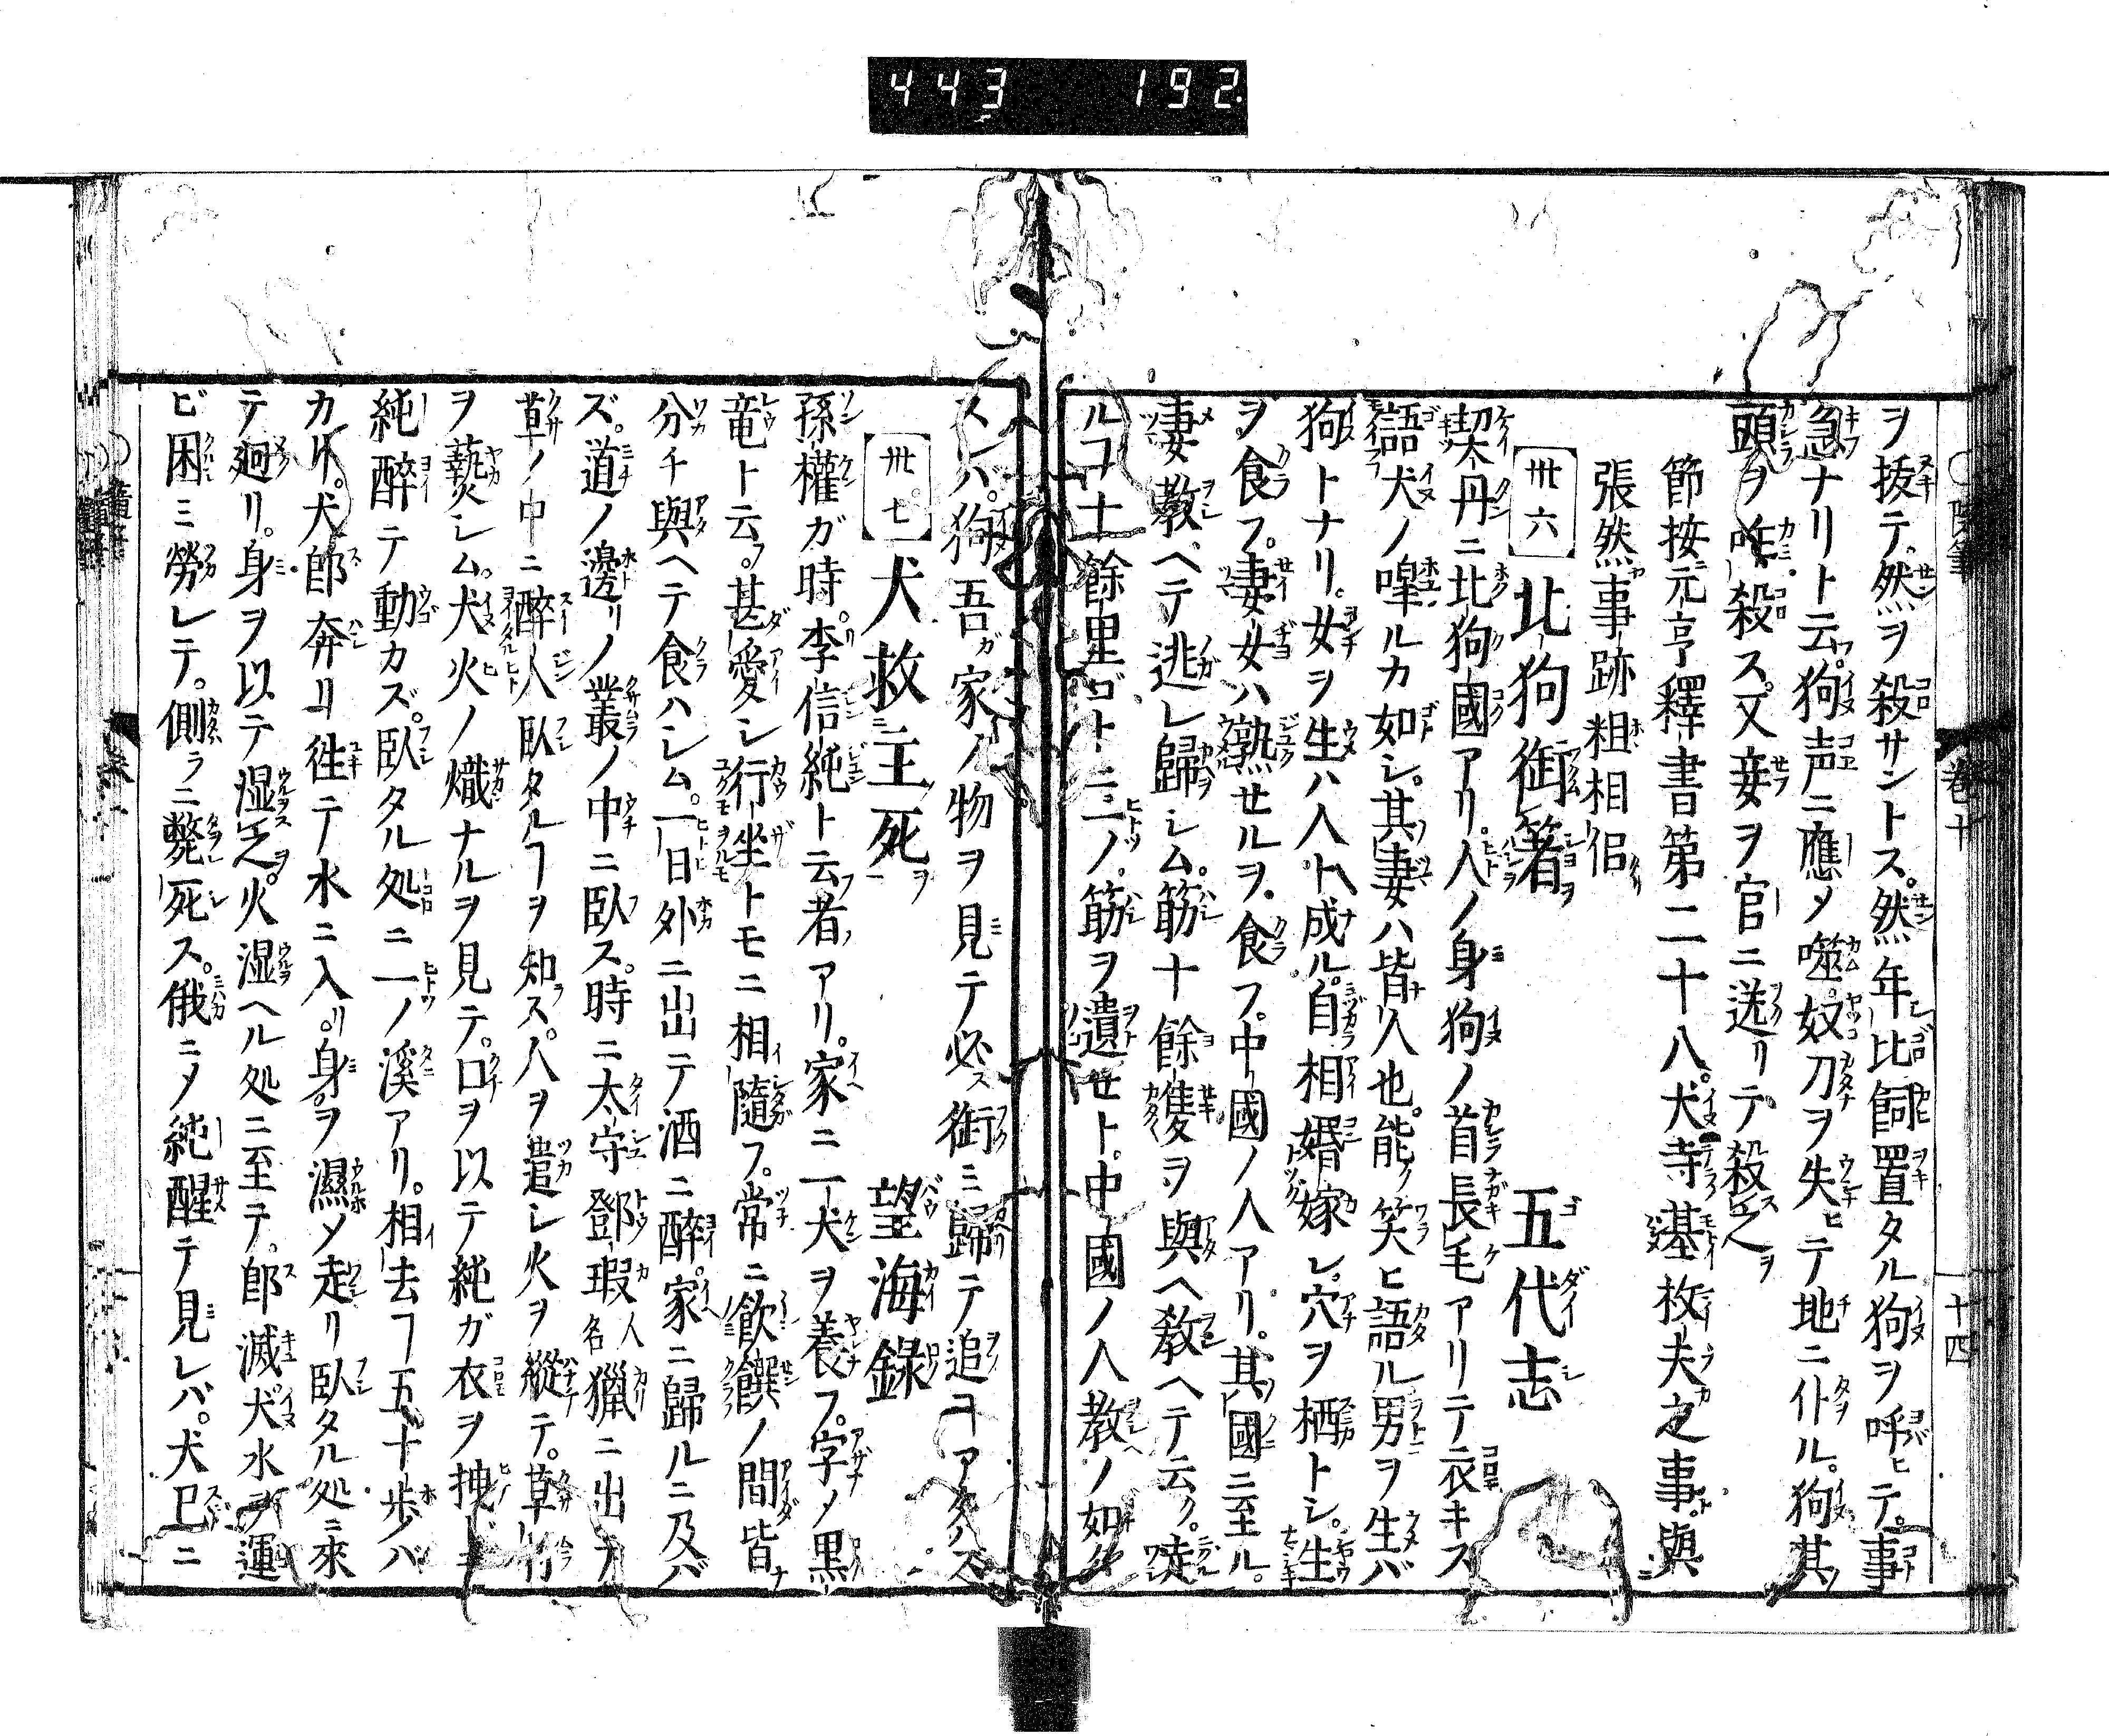 443 192.
卷十
十四
ヲ拔テ。然ヲ殺サントス。然年比飼置タル狗ヲ呼ヒテ。事
急ナリト云。狗声ニ應メ噬。奴刀ヲ失ヒテ地ニ仆ル。狗其
頭ヲ咋殺ス。又妾ヲ官ニ送リテ殺之
節按元亨釋書第二十八。犬寺基枚夫之事。與
張然事跡粗相似
卅六 北狗銜箸 五代志
契丹ニ北狗國アリ。人ノ身狗ノ首長毛アリテ衣キス
語犬ノ嘷ルカ如シ。其妻ハ皆人也。能ク笑ヒ語ル男ヲ生バ
狗トナリ。女ヲ生ハ人ト成ル。自相婚嫁シ。穴ヲ栖トシ。生
ヲ食フ。妻女ハ熟セルヲ食フ。中國ノ人アリ。其國ニ至ル。
妻教ヘテ逃レ歸シム。筯十餘隻ヲ與ヘ教ヘテ云ク。
ルコ十餘里ゴトニ一ノ筯ヲ遺セト。中國ノ人教ノ如ク
スレハ。狗吾ガ家ノ物ヲ見テ必ス銜ミ歸テ追ヿアタハズ
卅七 犬救主死 望海錄
孫權ガ時。李信純ト云者アリ。家ニ一犬ヲ養フ。字メ黒
竜ト云フ。甚愛シ行坐トモニ相隨フ。常ニ飲饌ノ間皆
分チ與ヘテ食ハシム。一日外ニ出テ酒ニ醉。家ニ歸ルニ及バ
ズ。道ノ邊リノ叢ノ中ニ臥ス。時ニ太守鄧瑕人名獵ニ出テ
草ノ中ニ醉人臥タルヿヲ知ス。人ヲ遣シ火ヲ縱テ。草
ヲ爇シム。犬火ノ熾ナルヲ見テ。口ヲ以テ純ガ衣ヲ拽トモ
純醉テ動カズ。臥タル処ニ一ノ溪アリ。相去ヿ五十歩バ
カリ。犬卽奔リ徃テ水ニ入リ。身ヲ濕メ走リ臥タル処ニ來
テ廻リ。身ヲ以テ湿之。火湿ヘル処ニ至テ。卽滅。犬水ヲ運
ビ困ミ勞レテ。側ラニ斃死ス。俄ニメ純醒テ見レバ。犬已ニ